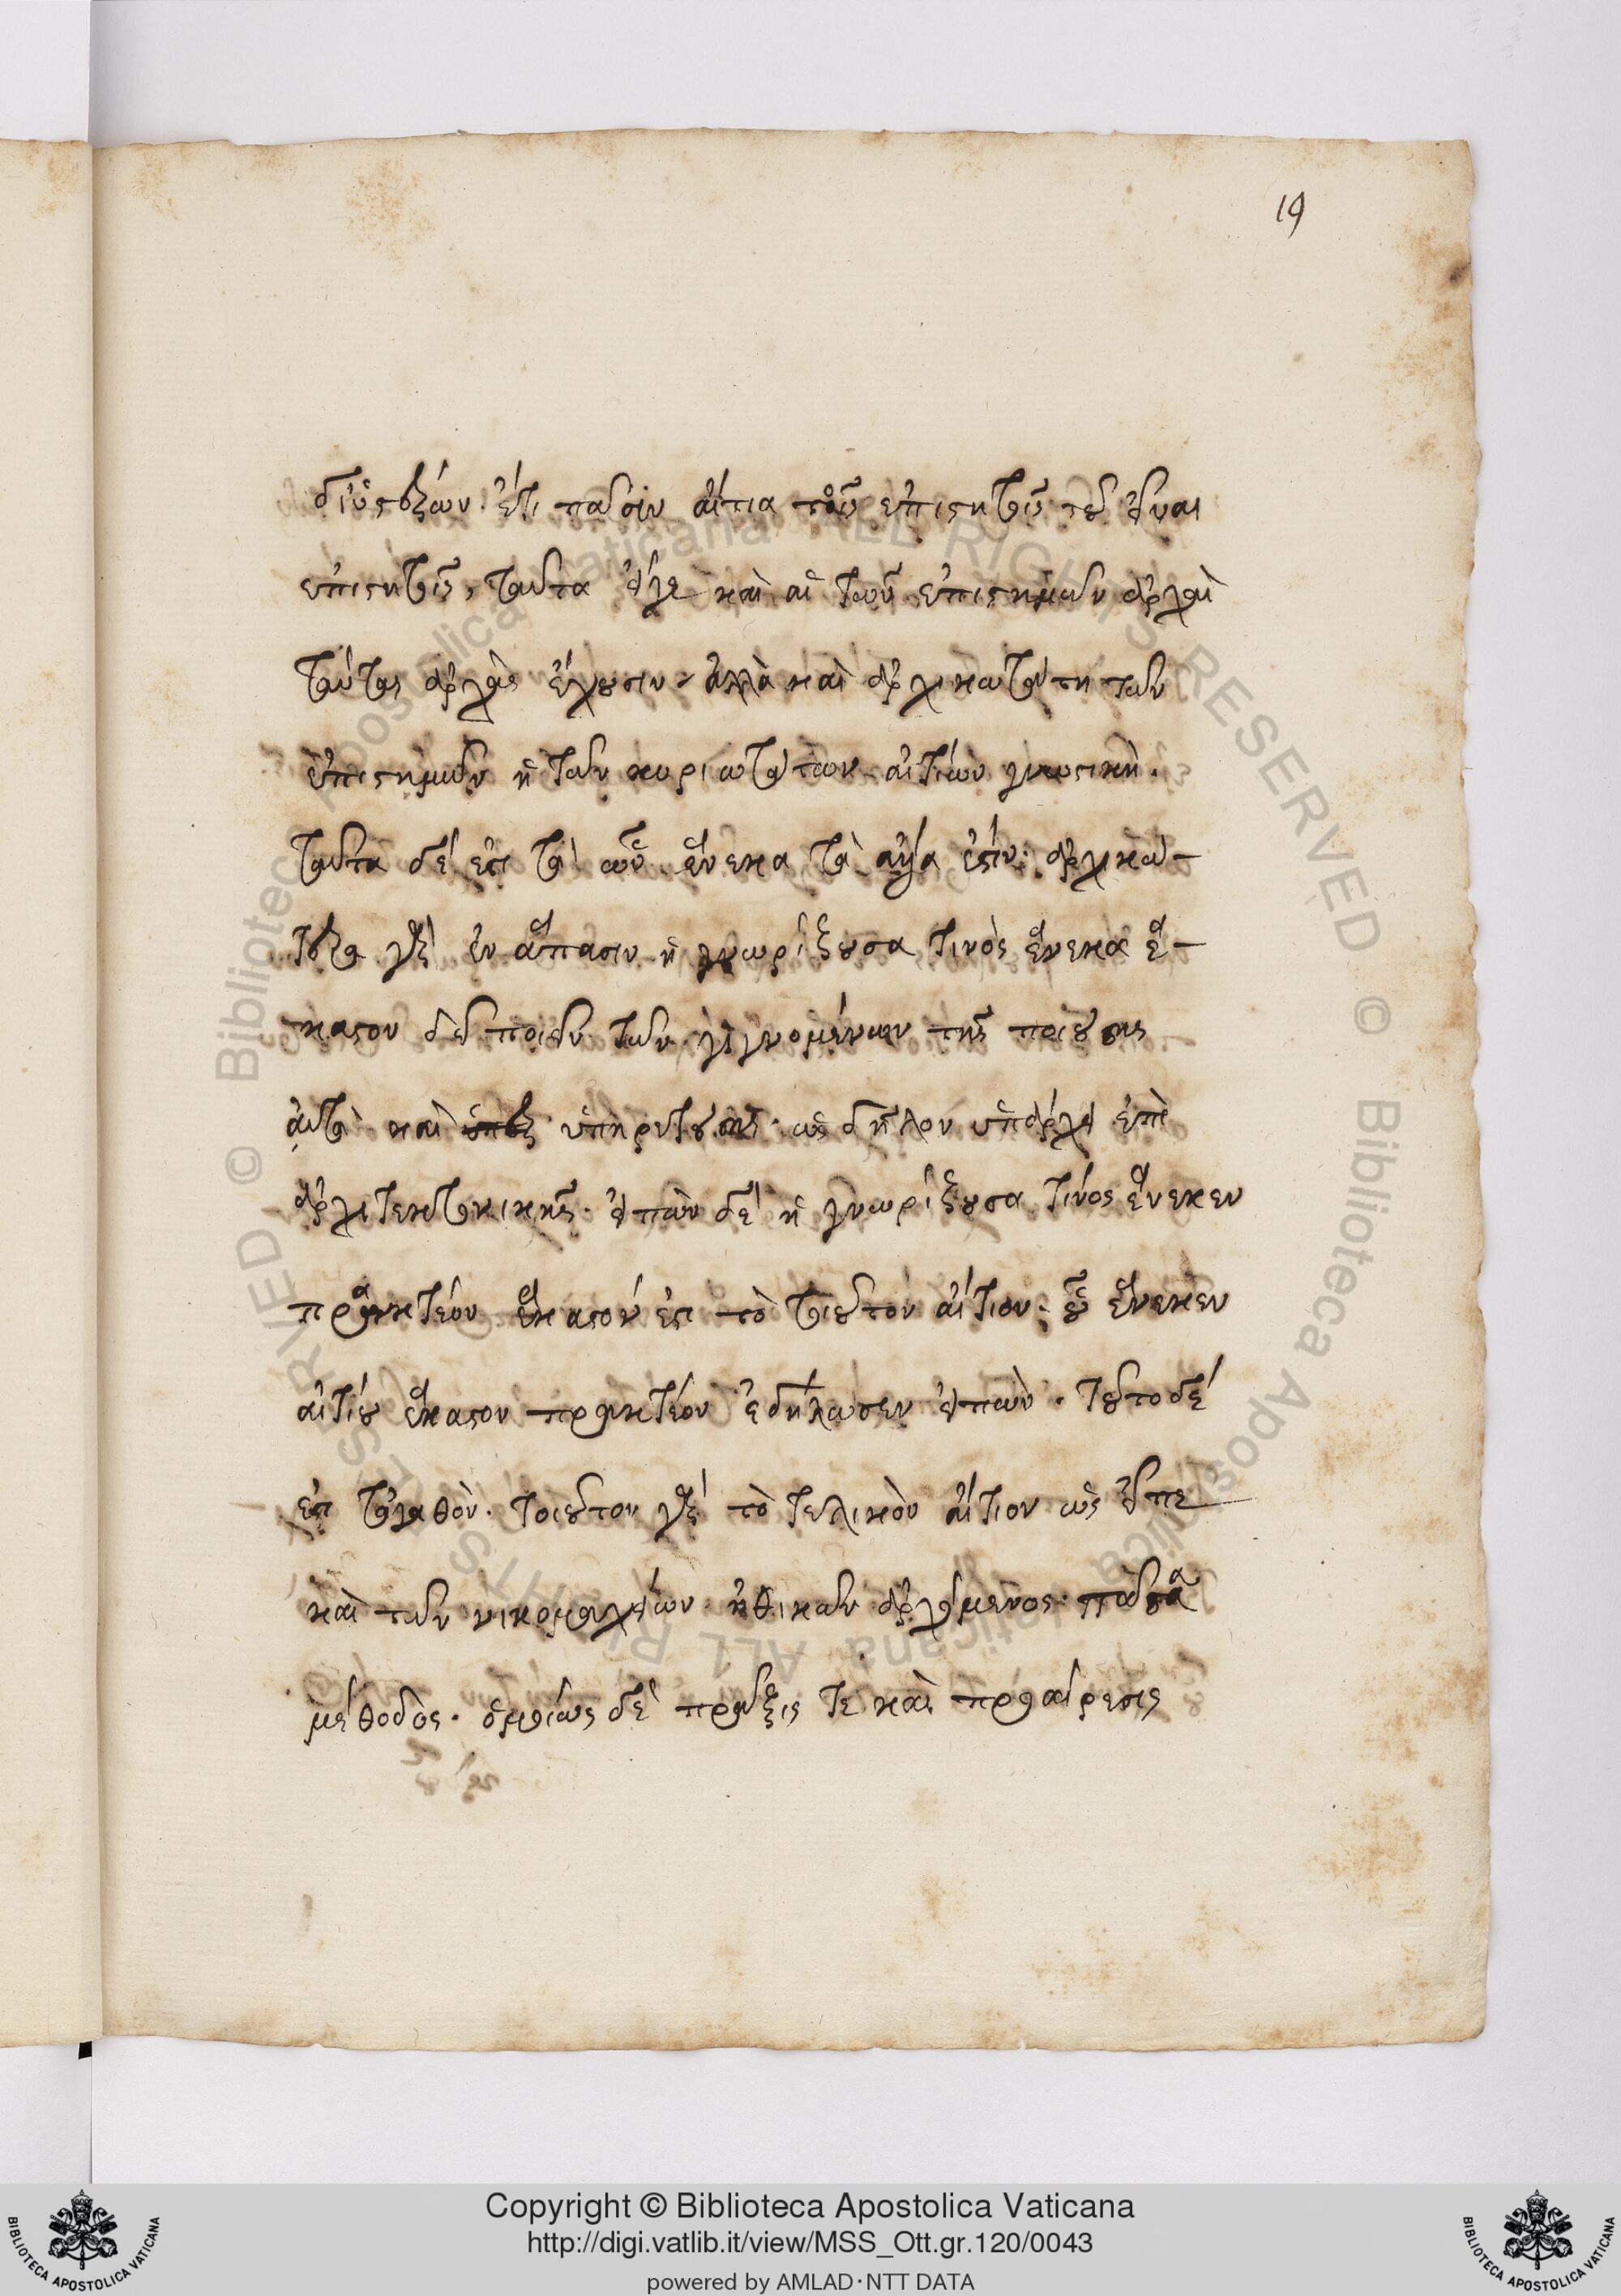 19
δι' ὑστέρων. ἔτι πᾶσιν αἴτια τοῦ ἐπιστητοῖς τοῦ εἶναι
ἐπιστητοῖς, ταῦτα εἴγε καὶ αἱ τῶν ἐπιστημῶν ἀρχαὶ
ταύτας ἀρχὰς ἔχουσιν. ἀλλὰ καὶ ἀρχικωτάτη τῶν
ἐπιστημῶν ἡ τῶν κυριωτάτων αἰτίων γνωστική.
ταῦτα δέ ἐστι τὰ ὧν ἕνεκα τὰ ἄλλα ἐστίν. ἀρχικω-
τάτη γὰρ ἐν ἅπασιν ἡ γνωρίζουσα τίνος ἕνεκα ἕ-
καστον δεῖ ποιεῖν τῶν γιγνομένων τῆς ποιούσης
αὐτὰ καὶ ὑπηρετούσης. ὡς δῆλον ὑπάρχει ἐπὶ
ἀρχιτεκτονικῆς. εἰπὼν δὲ ἡ γνωρίζουσα τίνος ἕνεκεν
πρακτέον ἕκαστόν ἐστι τὸ τοιοῦτον αἴτιον. οὗ ἕνεκεν
αἰτίου ἕκαστον πρακτέον ἐδήλωσεν εἰπὼν. τοῦτο δέ
ἐστι τἀγαθόν. τοιοῦτον γὰρ τὸ τελικὸν αἴτιον ὡς εἶπε
καὶ τῶν νικομαχείων ἠθικῶν ἀρχόμενος. πᾶσα
μέθοδος. ὁμοίως δὲ πρᾶξίς τε καὶ προαίρεσις
Copyright © Biblioteca Apostolica Vaticana
http://digi.vatlib.it/view/MSS_Ott.gr.120/0043
powered by AMLAD·NTT DATA